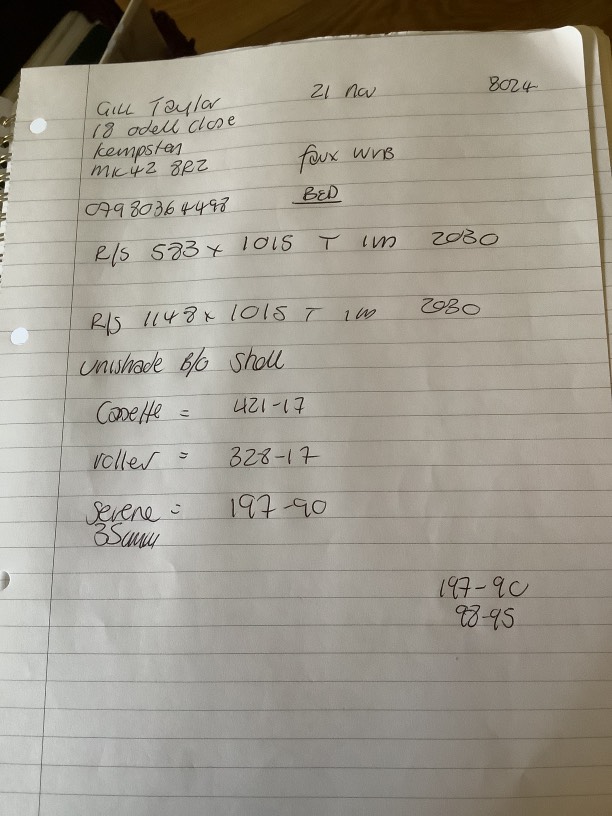 Gill Taylor 21 Nov 8024
18 odell close
Kempston
MK42 8RZ faux WNB
07980364498 BED
R/S 583 x 1015 T 1m 2030
R/S 1148 x 1015 T 1m 2030
unishade B/O Shell
Cassette = 421-17
roller = 328-17
Serene = 197-90
35mm
197-90
98-95